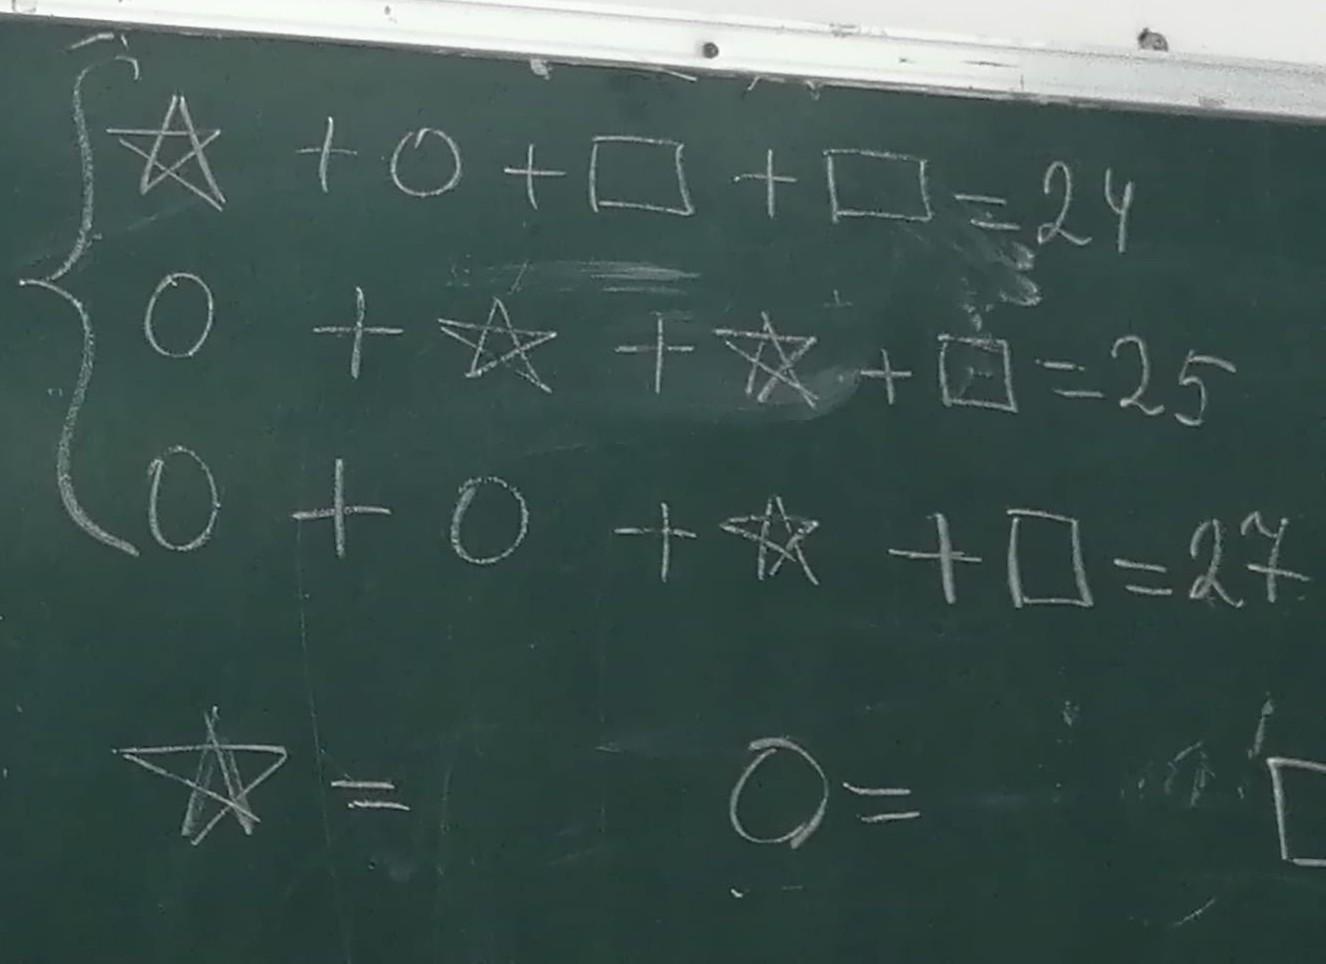 ☆ + ○ + □ + □ = 24
○ + ☆ + ☆ + □ = 25
○ + ○ + ☆ + □ = 27
☆ = ○ = □